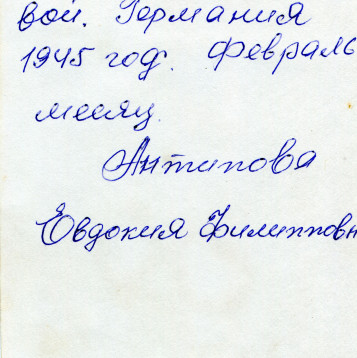 вой. Германия
1945 год. Февраль
месяц.
Антипова
Евдокия Филипповн